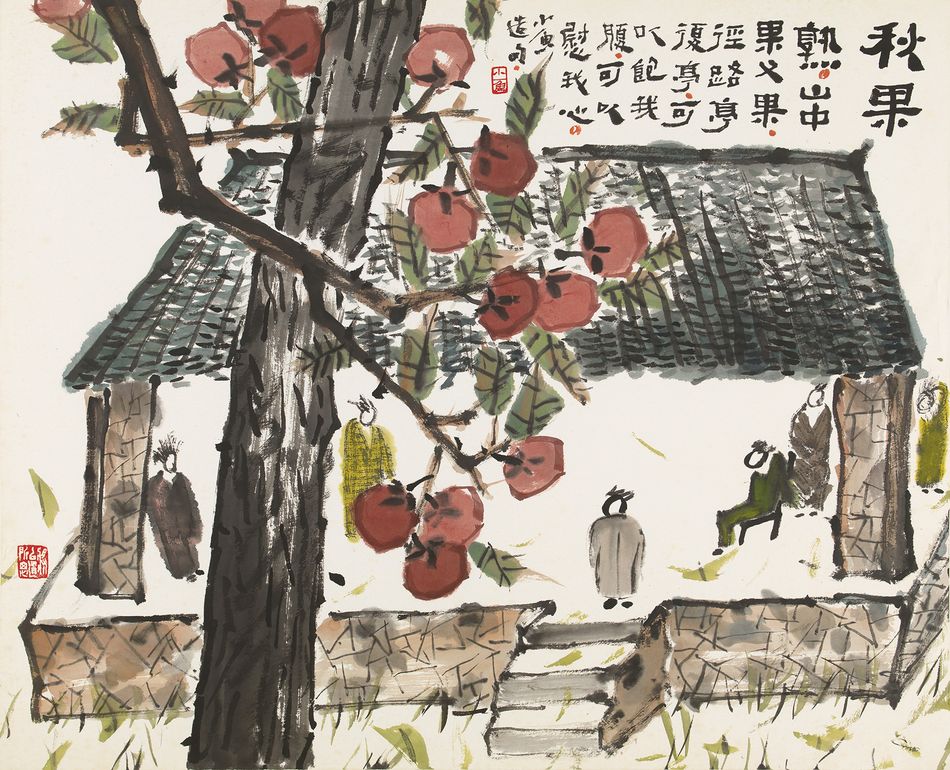 秋果
熟。山中
果又果。
徑路亭
復亭。可
以飽我
腹。可以
慰我心。
小魚
造句
小魚